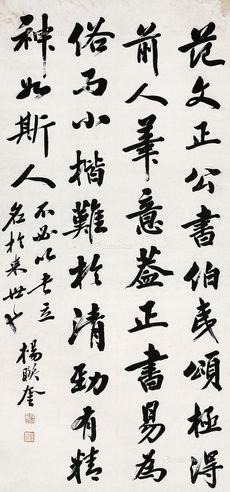 范文正公書伯夷頌極得
前人筆意蓋正書易為
俗而小楷難於清勁有精
神如斯人
不必以書立
名於來世也
楊啟奎